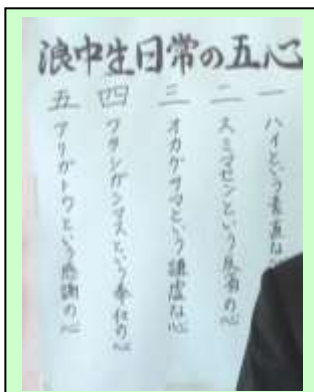 浪中生日常の五心
一 ハイという素直な
二 スミマセンという反省の心
三 オカゲサマという謙虚な心
四 ワタシガシマスという奉仕の心
五 アリガトウという感謝の心